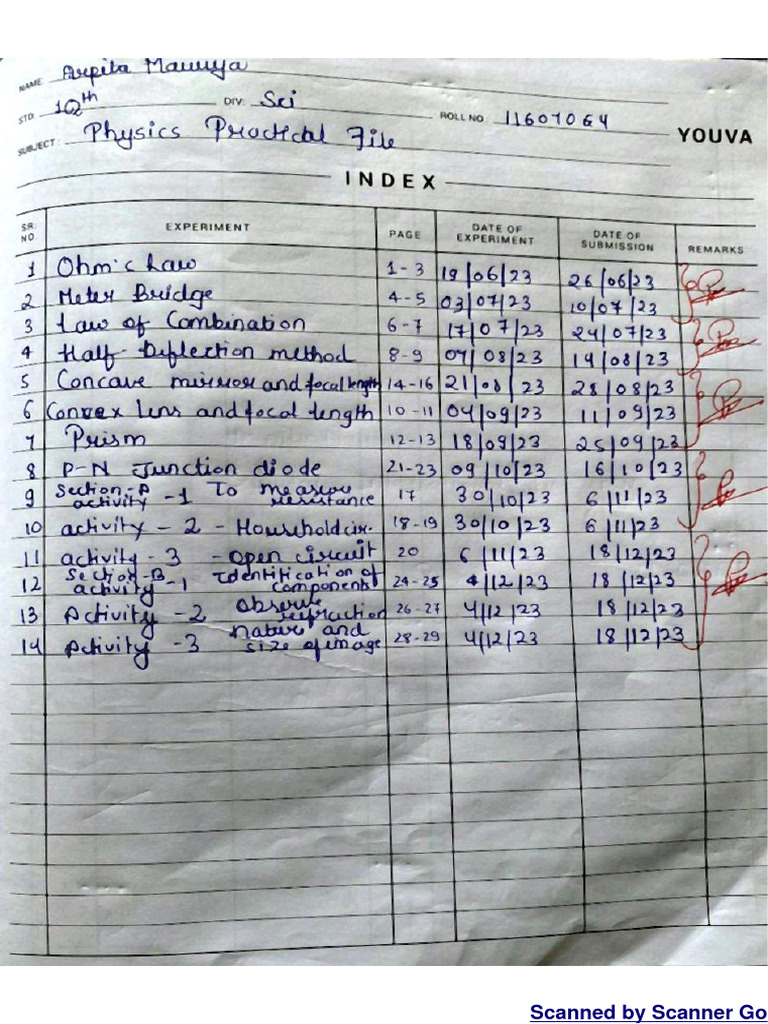 NAME: Arpita Maurya
STD: 12th DIV: Sci ROLL NO. 11607064 YOUVA
SUBJECT: Physics Practical File
INDEX
SR. NO. EXPERIMENT PAGE DATE OF EXPERIMENT DATE OF SUBMISSION REMARKS
1 Ohm's Law 1-3 19/06/23 26/06/23
2 Meter Bridge 4-5 03/07/23 10/07/23
3 Law of Combination 6-7 17/07/23 24/07/23
4 Half-Deflection method 8-9 07/08/23 14/08/23
5 Concave mirror and focal length 14-16 21/08/23 28/08/23
6 Convex lens and focal length 10-11 04/09/23 11/09/23
7 Prism 12-13 18/09/23 25/09/23
8 P-N Junction diode 21-23 09/10/23 16/10/23
9 Section-A activity -1 To measure resistance 17 30/10/23 6/11/23
10 activity - 2 - Household cir. 18-19 30/10/23 6/11/23
11 activity - 3 - open circuit 20 6/11/23 18/12/23
12 Section-B activity -1 Identification of components 24-25 4/12/23 18/12/23
13 Activity -2 observe refraction 26-27 4/12/23 18/12/23
14 Activity -3 nature and size of image 28-29 4/12/23 18/12/23
Scanned by Scanner Go